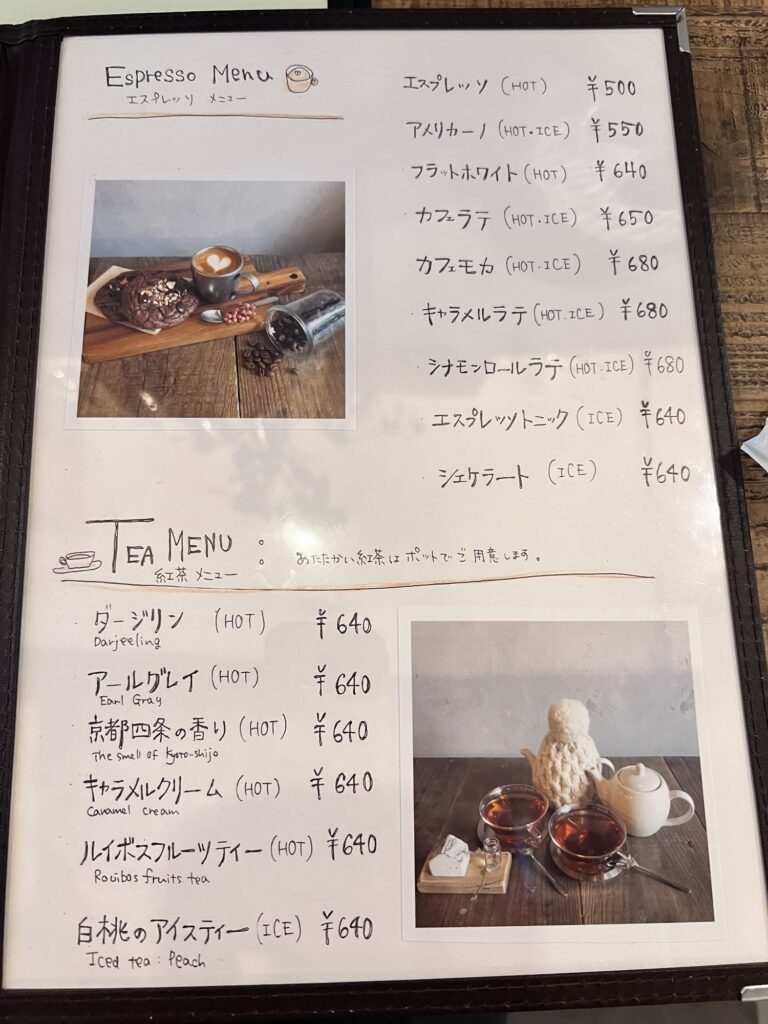 Espresso Menu
エスプレッソ メニュー
エスプレッソ (HOT) ¥500
アメリカーノ (HOT・ICE) ¥550
フラットホワイト (HOT) ¥640
カフェラテ (HOT・ICE) ¥650
カフェモカ (HOT・ICE) ¥680
キャラメルラテ (HOT・ICE) ¥680
シナモンロールラテ (HOT・ICE) ¥680
エスプレッソトニック (ICE) ¥640
シェケラート (ICE) ¥640
TEA MENU :
紅茶 メニュー
あたたかい紅茶は ポットで ご用意します。
ダージリン (HOT) ¥640
Darjeeling
アールグレイ (HOT) ¥640
Earl Gray
京都四条の香り (HOT) ¥640
The smell of Kyoto-shijo
キャラメルクリーム (HOT) ¥640
Caramel cream
ルイボスフルーツティー (HOT) ¥640
Rouibos fruits tea
白桃のアイスティー (ICE) ¥640
Iced tea : Peach